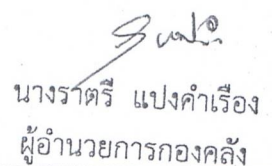 นางราตรี แปงคำเรือง
ผู้อำนวยการกองคลัง